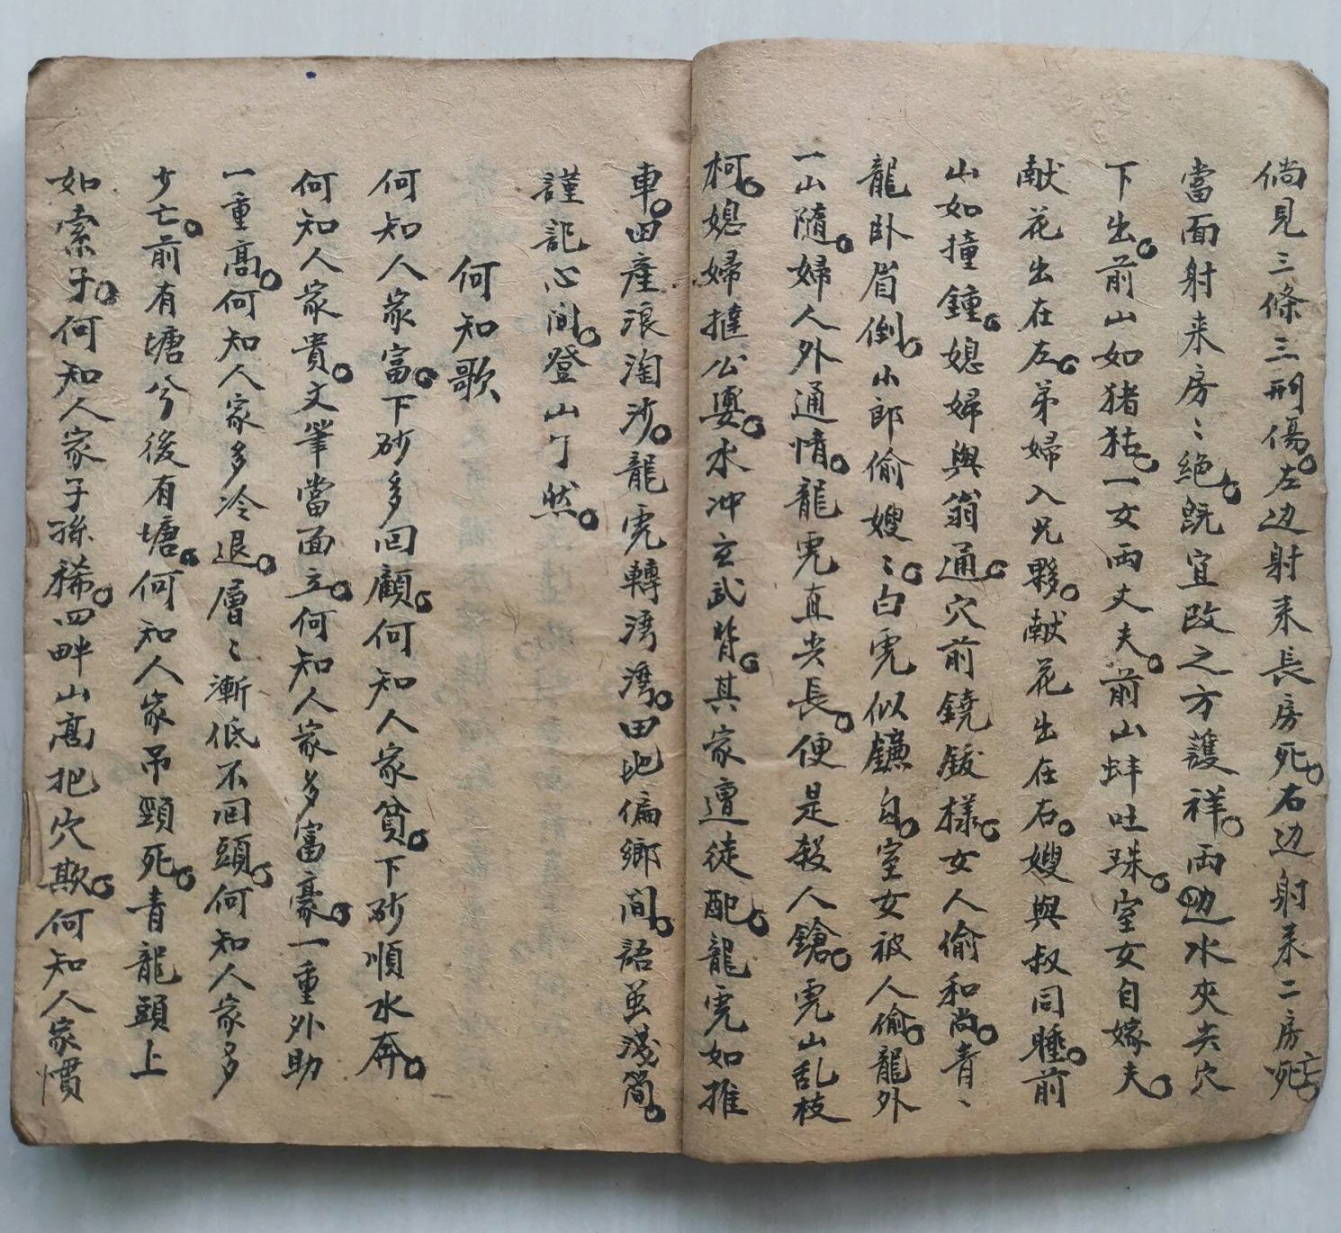 倘見三條三刑傷。左边射来長房死。右边射来二房亡。
當面射来房〻絶。既宜改之方護祥。両边水夾夹穴
下出。前山如猪牯。一女両丈夫。前山蚌吐珠。室女自嫁夫。
献花出在左。弟婦入兄夥。献花出在右。嫂與叔同睡。前
山如撞鍾。媳婦與翁通。穴前鐃鈸樣。女人偷和尚。青、
龍卧眉倒。小郎偷嫂〻。白虎似鐮自。室女被人偷。龍外
一山隨。婦人外通情。龍虎直尖長。便是殺人鎗。虎山乱枝
柯。媳婦撻公婆。水冲玄武背。其家遭徒配。龍虎如推
車。田産浪淘沙。龍虎轉湾湾。田地偏鄉間。語虽淺简。
謹記心间。登山了然。
何知歌
何知人家富。下砂多回顧。何知人家貧。下砂順水奔。
何知人家貴。文筆當面立。何知人家多富豪。一重外助
一重高。何知人家多冷退。層〻漸低不回頭。何知人家多
少亡。前有塘兮後有塘。何知人家吊頸死。青龍頭上
如索子。何知人家子孫稀。四畔山高把穴欺。何知人家慣